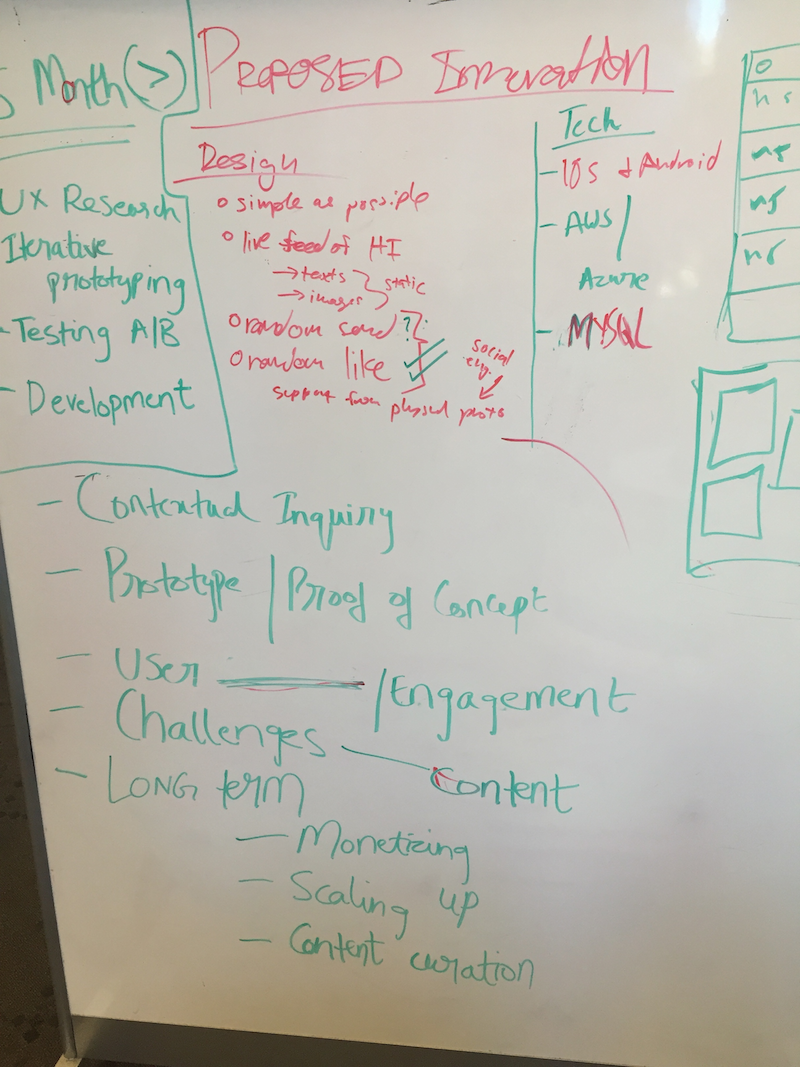 Month (>)
UX Research
Iterative
prototyping
- Testing A/B
- Development
PROPOSED Innovation
Design
o simple as possible
o live feed of HI
→ texts
→ images
static
o random send ?
o random like
social
eng.
support from
Tech
- iOS & Android
- AWS /
Azure
- MYSQL
- Contextual Inquiry
- Prototype / Proof of Concept
- User / Engagement
- Challenges
Content
- LONG term
- Monetizing
- Scaling up
- Content curation